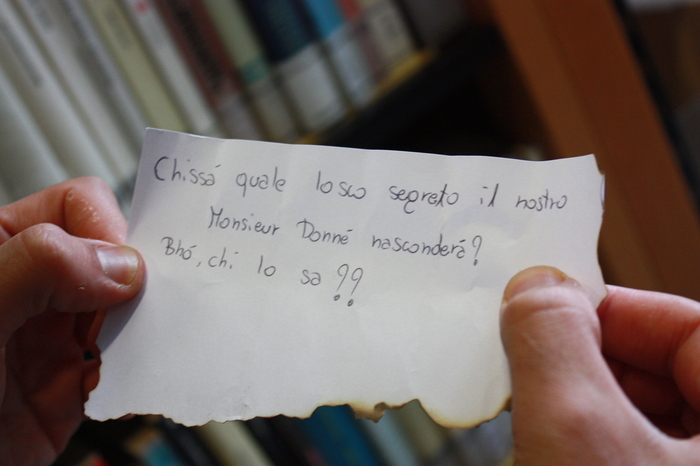 Chissá quale losco segreto il nostro
Monsieur Donné nasconderá?
Bhó, chi lo sa??